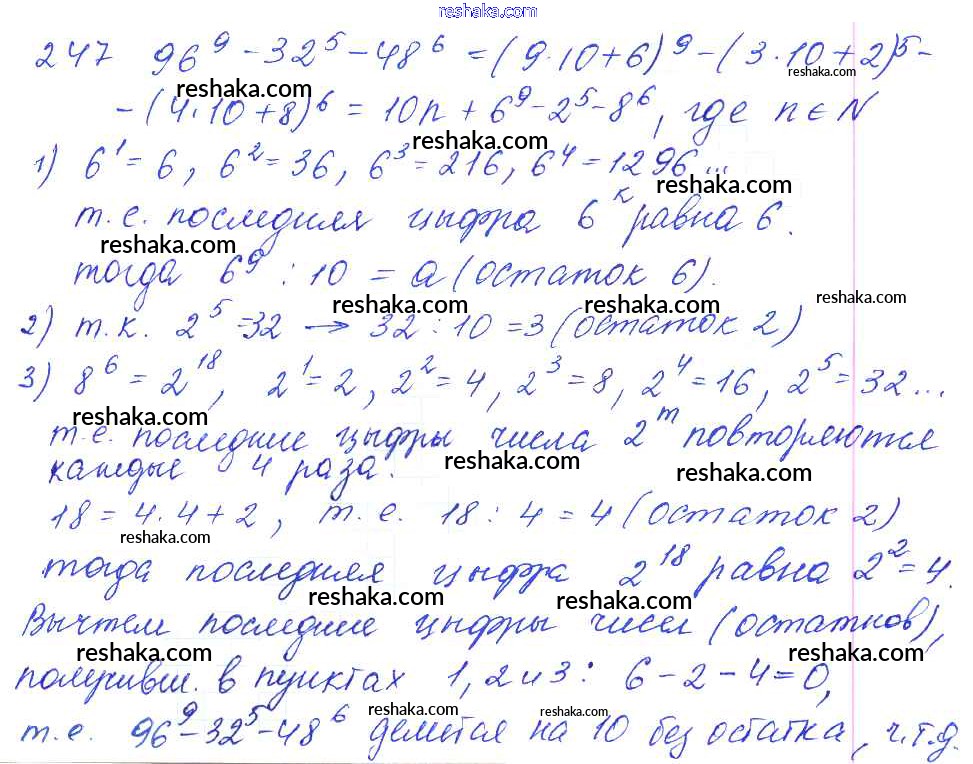 www.reshaka.com
247 96⁹ - 32⁵ - 48⁶ = (9·10+6)⁹ - (3·10+2)⁵ -
reshaka.com
reshaka.com
- (4·10+8)⁶ = 10n + 6⁹ - 2⁵ - 8⁶, где n ∈ N
reshaka.com
1) 6¹ = 6, 6² = 36, 6³ = 216, 6⁴ = 1296...
reshaka.com
т.е. последняя цыфра 6ᵏ равна 6.
reshaka.com
тогда 6⁹ : 10 = a (остаток 6).
reshaka.com reshaka.com reshaka.com
2) т.к. 2⁵ = 32 → 32 : 10 = 3 (остаток 2)
3) 8⁶ = 2¹⁸, 2¹ = 2, 2² = 4, 2³ = 8, 2⁴ = 16, 2⁵ = 32...
reshaka.com
т.е. последние цыфры числа 2ᵐ повторяются
reshaka.com reshaka.com
каждые 4 раза.
18 = 4·4+2, т.е. 18 : 4 = 4 (остаток 2)
reshaka.com reshaka.com
тогда последняя цыфра 2¹⁸ равна 2² = 4.
reshaka.com reshaka.com
Вычтем последние цыфры чисел (остатков),
reshaka.com reshaka.com
получивш. в пунктах 1, 2 и 3: 6 - 2 - 4 = 0,
reshaka.com reshaka.com
т.е. 96⁹ - 32⁵ - 48⁶ делится на 10 без остатка, ч.т.д.